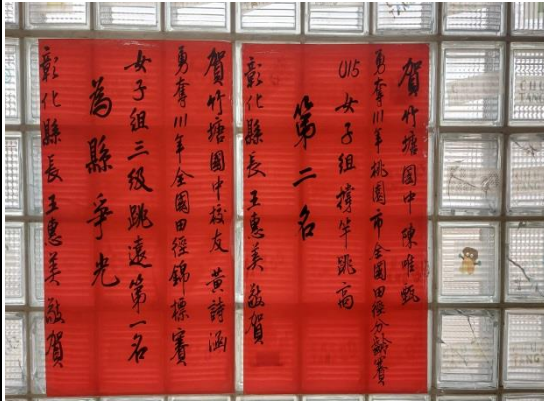 賀竹塘國中陳唯甄
勇奪111年桃園市全國田徑分齡賽
U15女子組撐竿跳高
第二名
彰化縣長王惠美敬賀
賀竹塘國中校友黃詩涵
勇奪111年全國田徑錦標賽
女子組三級跳遠第一名
為縣爭光
彰化縣長王惠美敬賀